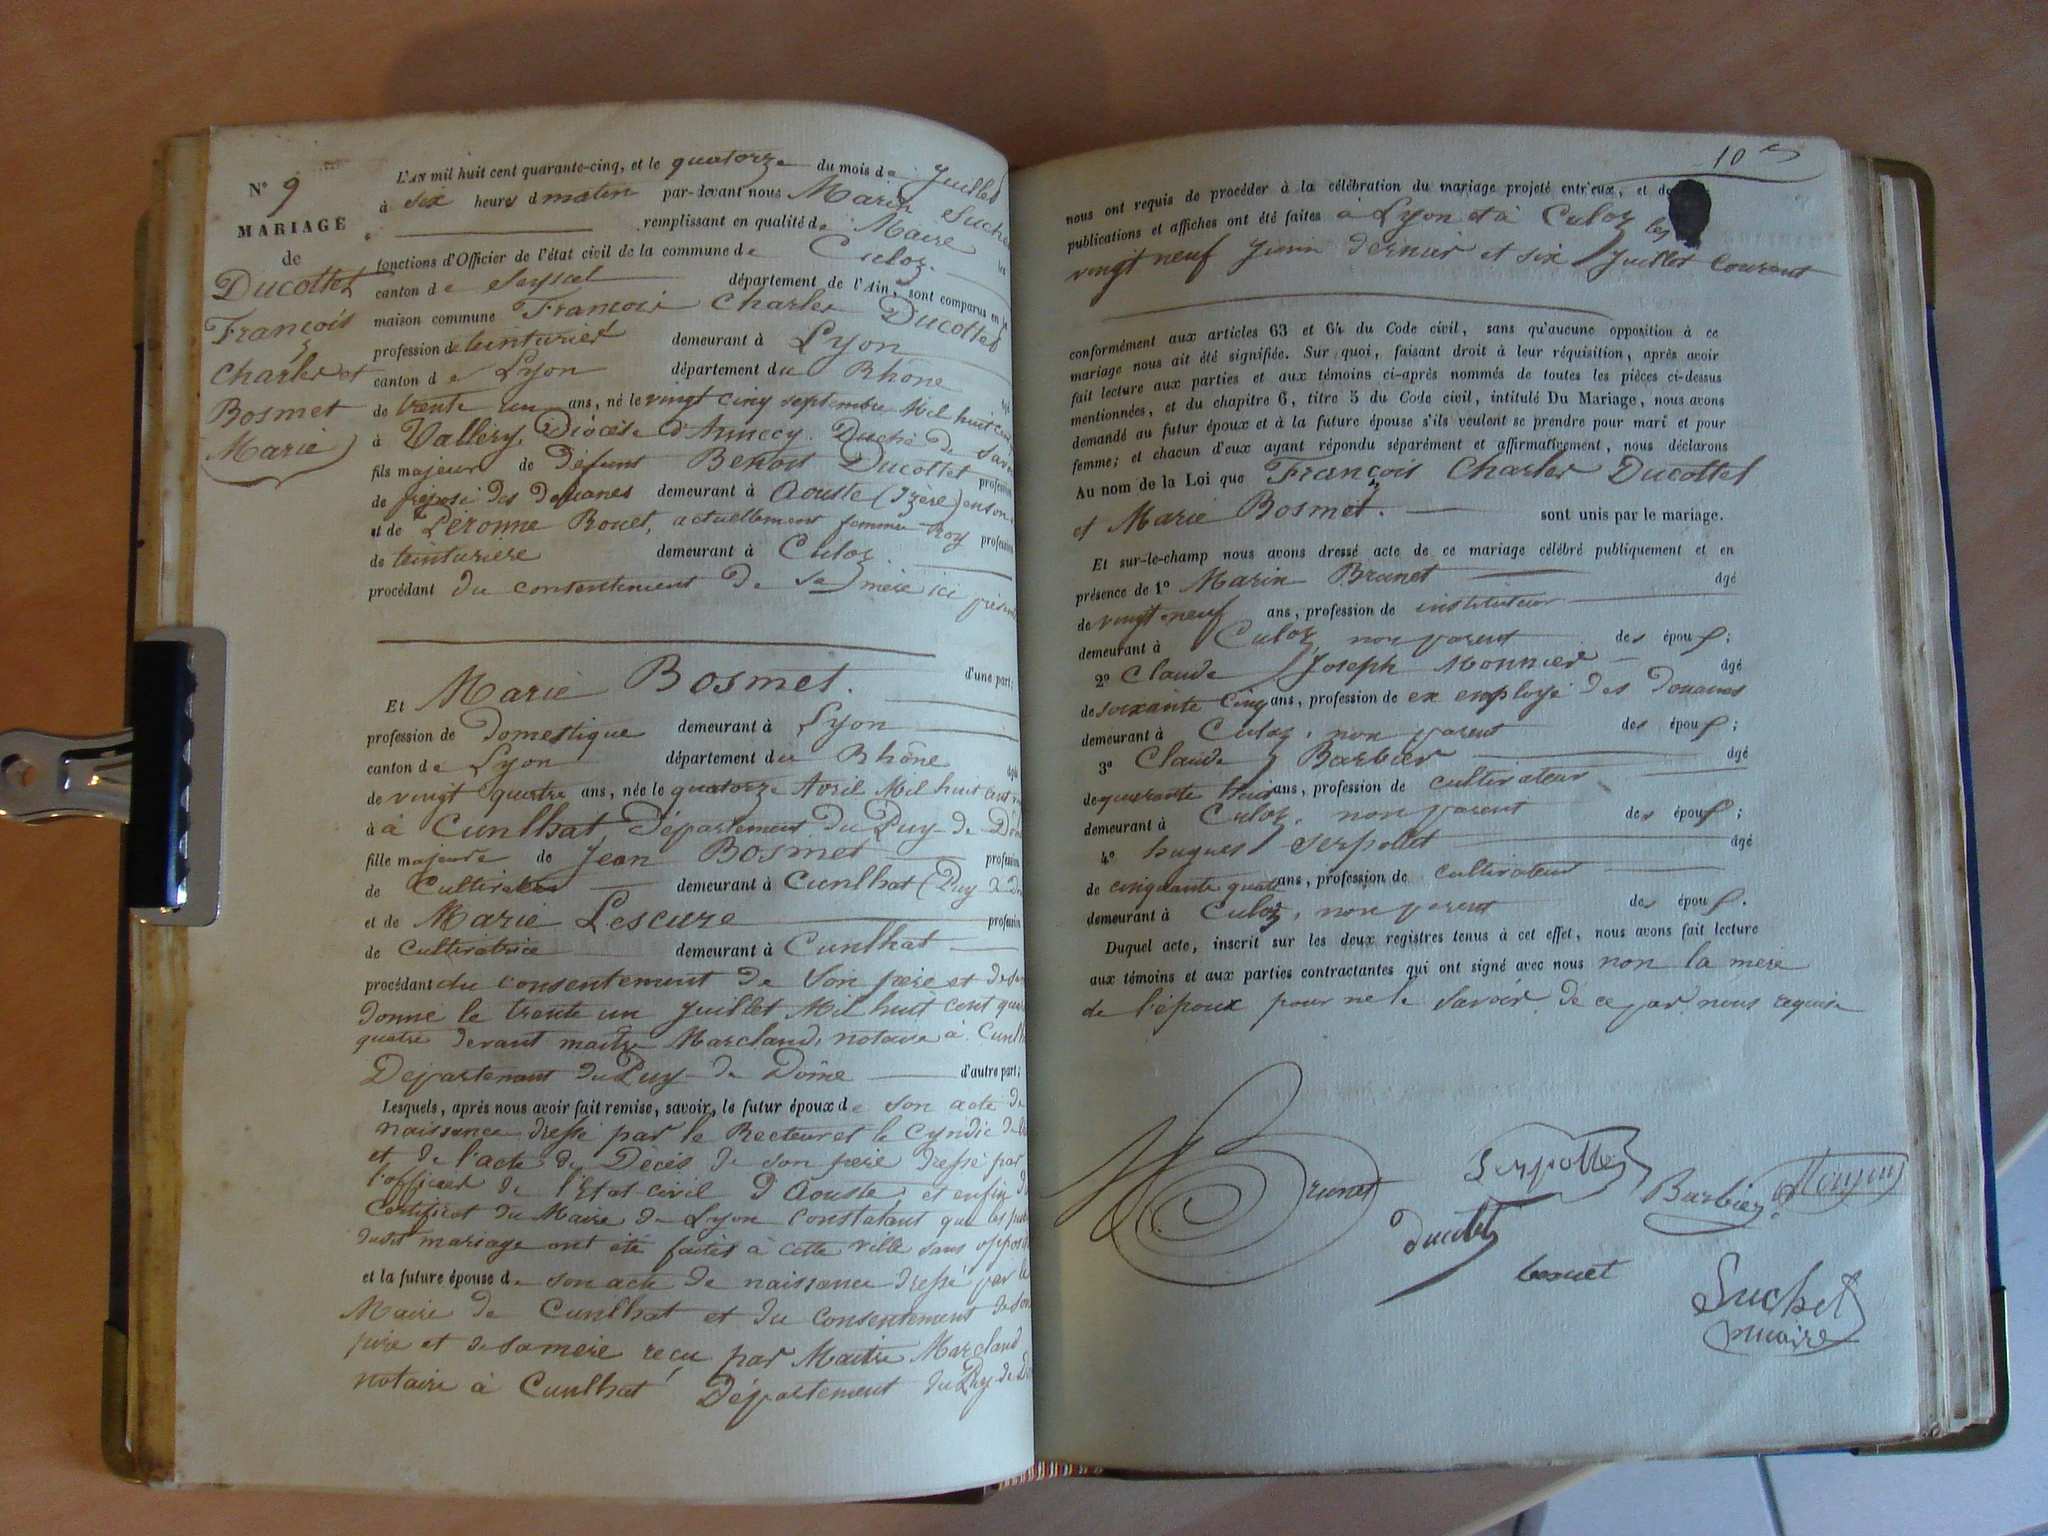 N° 9
MARIAGE
de
Ducottet
François
Charles et
Bosmet
Marie
L'AN mil huit cent quarante-cinq, et le quatorze du mois de Juillet
à six heures d matin par-devant nous Marin Suchet
remplissant en qualité de Maire
fonctions d'Officier de l'état civil de la commune de Culoz les
canton de Seyssel département de l'Ain, sont comparus en la
maison commune François Charles Ducottet
profession de teinturier demeurant à Lyon
canton de Lyon département du Rhône
de trente un ans, né le vingt cinq septembre Mil huit cent
à Valléry, Diocèse d'Annecy. Duché de Savoie
fils majeur de défunt Benoit Ducottet profession
de préposé des douanes demeurant à Aouste (Izère) en son
et de Péronne Bouet, actuellement femme Roy profession
de teinturière demeurant à Culoz
procédant du consentement de sa mère ici présente
d'une part;
Et Marie Bosmet.
profession de Domestique demeurant à Lyon
canton de Lyon département du Rhône âgée
de vingt quatre ans, née le quatorze Avril Mil huit cent
à à Cunlhat, Département du Puy-de-Dôme
fille majeure de Jean Bosmet profession
de Cultivateur demeurant à Cunlhat (Puy de Dôme
et de Marie Lescure profession
de Cultivatrice demeurant à Cunlhat
procédant du consentement de son père et de sa
donné le trente un Juillet Mil huit cent quarante
quatre devant maître Marcland, notaire à Cunlhat
Département du Puy-de-Dôme d'autre part;
Lesquels, après nous avoir fait remise, savoir, le futur époux de son acte de
naissance dressé par le Recteur et le Cyndic de
et de l'acte de Décès de son père dressé par
l'officier de l'Etat-civil d'Aouste, et enfin du
Certificat du Maire de Lyon constatant que les
dudit mariage ont été faites à cette ville sans opposition
et la future épouse de son acte de naissance dressé par le
Maire de Cunlhat et du consentement de son
père et de sa mère reçu par Maître Marcland
notaire à Cunlhat Département du Puy de Dôme
10
nous ont requis de procéder à la célébration du mariage projeté entr'eux, et do
publications et affiches ont été faites à Lyon et à Culoz les
vingt neuf Juin dernier et six Juillet courant
conformément aux articles 63 et 64 du Code civil, sans qu'aucune opposition à ce
mariage nous ait été signifiée. Sur quoi, faisant droit à leur réquisition, après avoir
fait lecture aux parties et aux témoins ci-après nommés de toutes les pièces ci-dessus
mentionnées, et du chapitre 6, titre 5 du Code civil, intitulé Du Mariage, nous avons
demandé au futur époux et à la future épouse s'ils veulent se prendre pour mari et pour
femme; et chacun d'eux ayant répondu séparément et affirmativement, nous déclarons
Au nom de la Loi que François Charles Ducottet
et Marie Bosmet. sont unis par le mariage.
Et sur-le-champ nous avons dressé acte de ce mariage célébré publiquement et en
présence de 1° Marin Brunet âgé
de vingt-neuf ans, profession de instituteur
demeurant à Culoz, non parent des époux;
2° Claude Joseph Monnier âgé
de soixante cinq ans, profession de ex employé des Douanes
demeurant à Culoz, non parent des époux;
3° Claude Barbier âgé
de quarante huit ans, profession de cultivateur
demeurant à Culoz, non parent des époux;
4° hugues Serpollet âgé
de cinquante quatre ans, profession de cultivateur
demeurant à Culoz, non parent des époux.
Duquel acte, inscrit sur les deux registres tenus à cet effet, nous avons fait lecture
aux témoins et aux parties contractantes qui ont signé avec nous non la mère
de l'époux pour ne le savoir de ce par nous requise
M Brunet
Serpollet
Barbier
Suchet
maire